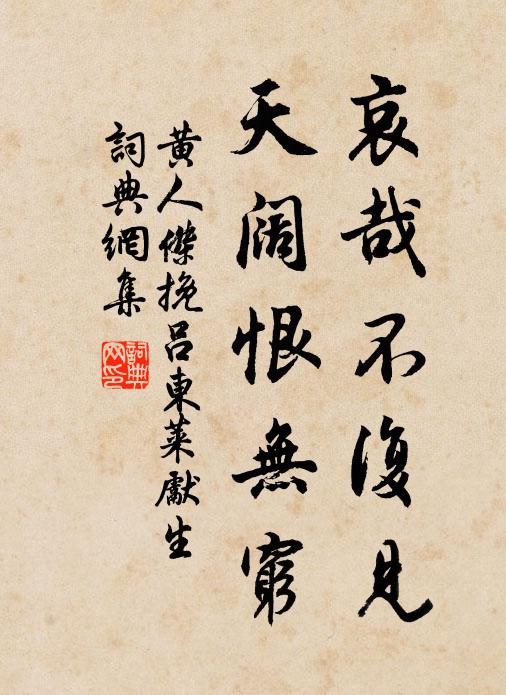 哀哉不復見
天阔恨無窮
黄人傑挽吕東萊獻生
詞典網集
詞典網印